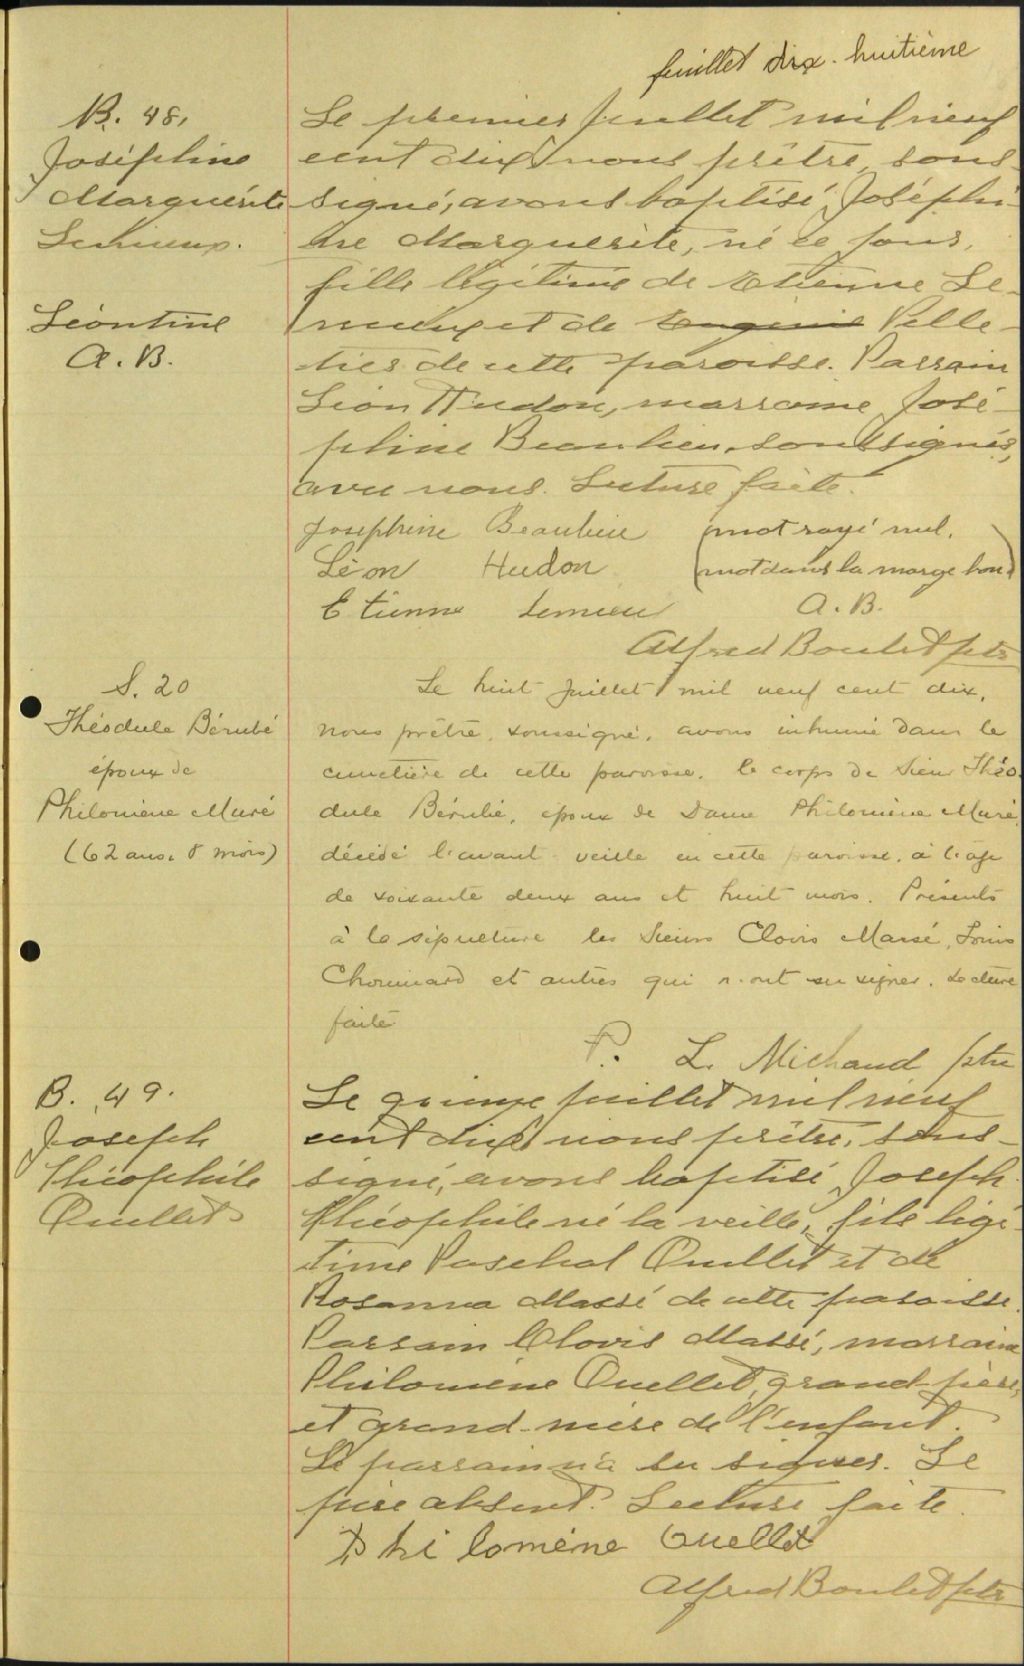 feuillet dix-huitième
B. 48.
Joséphine
Marguérite
Lemieux.
Léontine
A. B.
Le premier juillet mil neuf
cent dix, nous prêtre, sous-
signé, avons baptisé, Joséphi-
ne Marguerite, né ce jour,
fille légitime de Etienne Le-
mieux et de Eugenie Pelle-
tier de cette paroisse. Parrain
Léon Hudon, marraine José-
phine Beaulieu, soussignés,
avec nous. Lecture faite.
Josephine Beaulieu
Léon Hudon
Etienne Lemieu
(mot rayé nul.
(mot dans la marge bon)
A. B.
Alfred Boulet ptr
S. 20
Théodule Bérubé
époux de
Philomène Maré
(62 ans. 8 mois)
Le huit juillet mil neuf cent dix,
nous prêtre, soussigné, avons inhumé dans le
cimetière de cette paroisse, le corps de Sieur Théo-
dule Bérubé, époux de Dame Philomène Maré,
décédé l'avant-veille en cette paroisse, à l'age
de soixante deux ans et huit mois. Présents
à la sépulture les Sieurs Clovis Massé, Louis
Chouinard et autres qui n'ont su signer. Lecture
faite
P. L. Michaud ptre
B. 49.
Joseph
Théophile
Ouellet
Le quinze juillet mil neuf
cent dix, nous prêtre, sous-
signé, avons baptisé Joseph
Théophile né la veille, fils légi-
time Paschal Ouellet et de
Rosanna Massé de cette paroisse.
Parrain Clovis Massé, marraine
Philomène Ouellet, grand-père,
et grand-mère de l'enfant.
Le parrain n'a su signer. Le
père absent. Lecture faite.
Philomène Ouellet
Alfred Boulet ptr